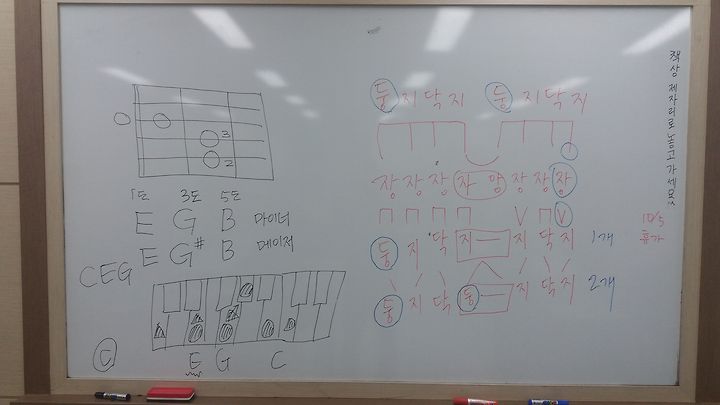 3
2
1도 3도 5도
E G B 마이너
E G# B 메이저
CEG
E G C
C
둥 지 닥 지 둥 지 닥 지
장 장 장 자 앙 장 장 장
둥 지 닥 지 ㅡ 지 닥 지 1개
둥 지 닥 둥 ㅡ 지 닥 지 2개
10/5
휴가
책상 제자리로 놓고 가세요!!